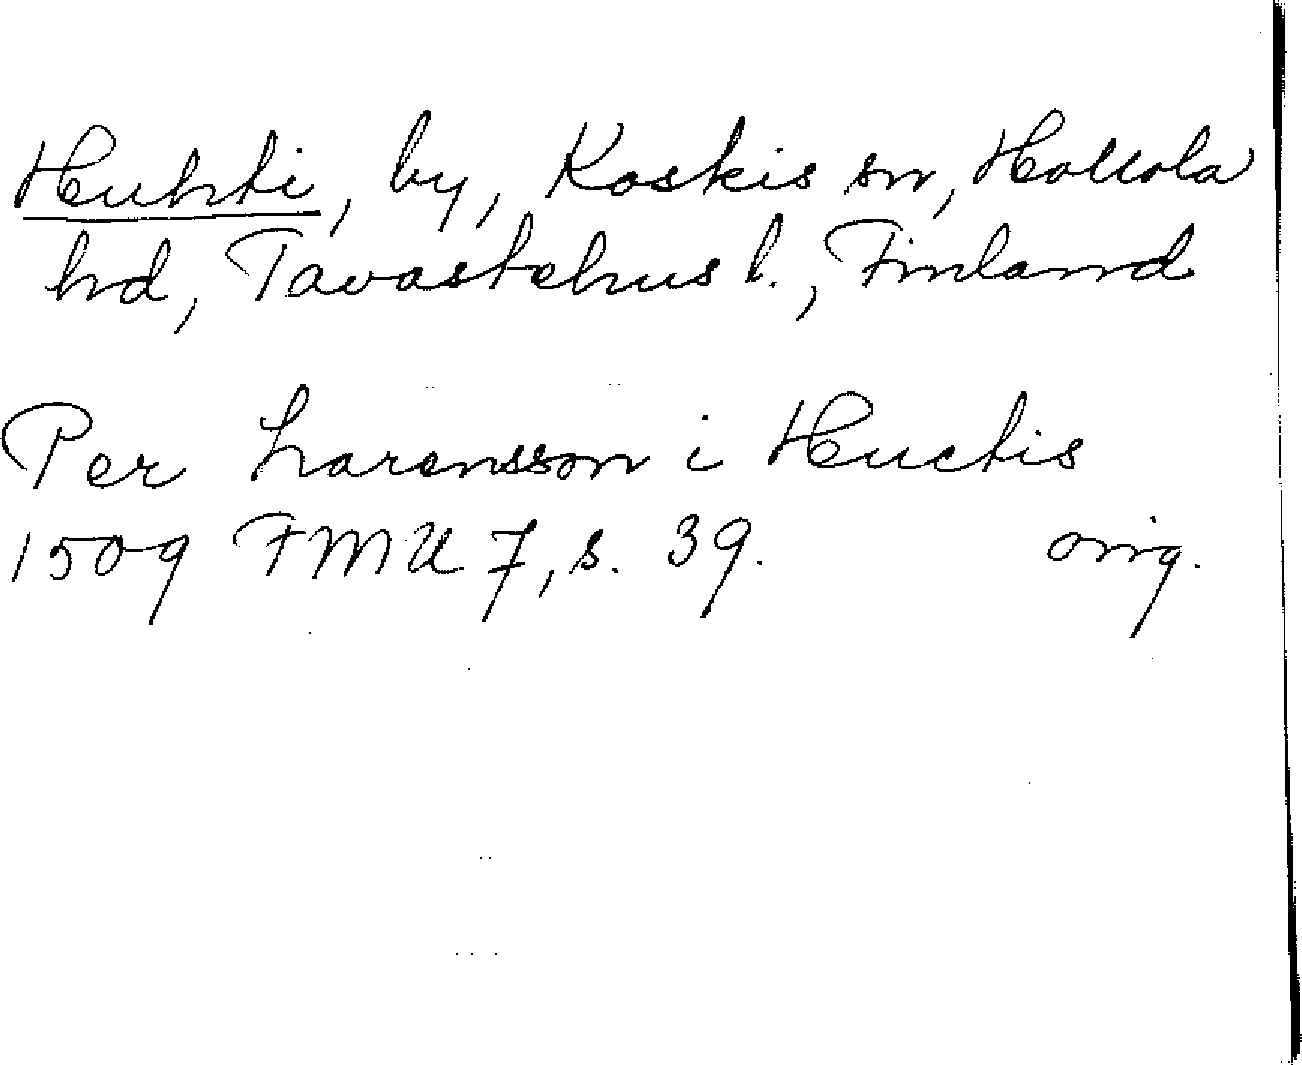 Huhti, by, Koskis sn, Hollola
hd, Tavastehus l., Finland
Per Larensson i Huctis
1509 FMU 7, s. 39. orig.